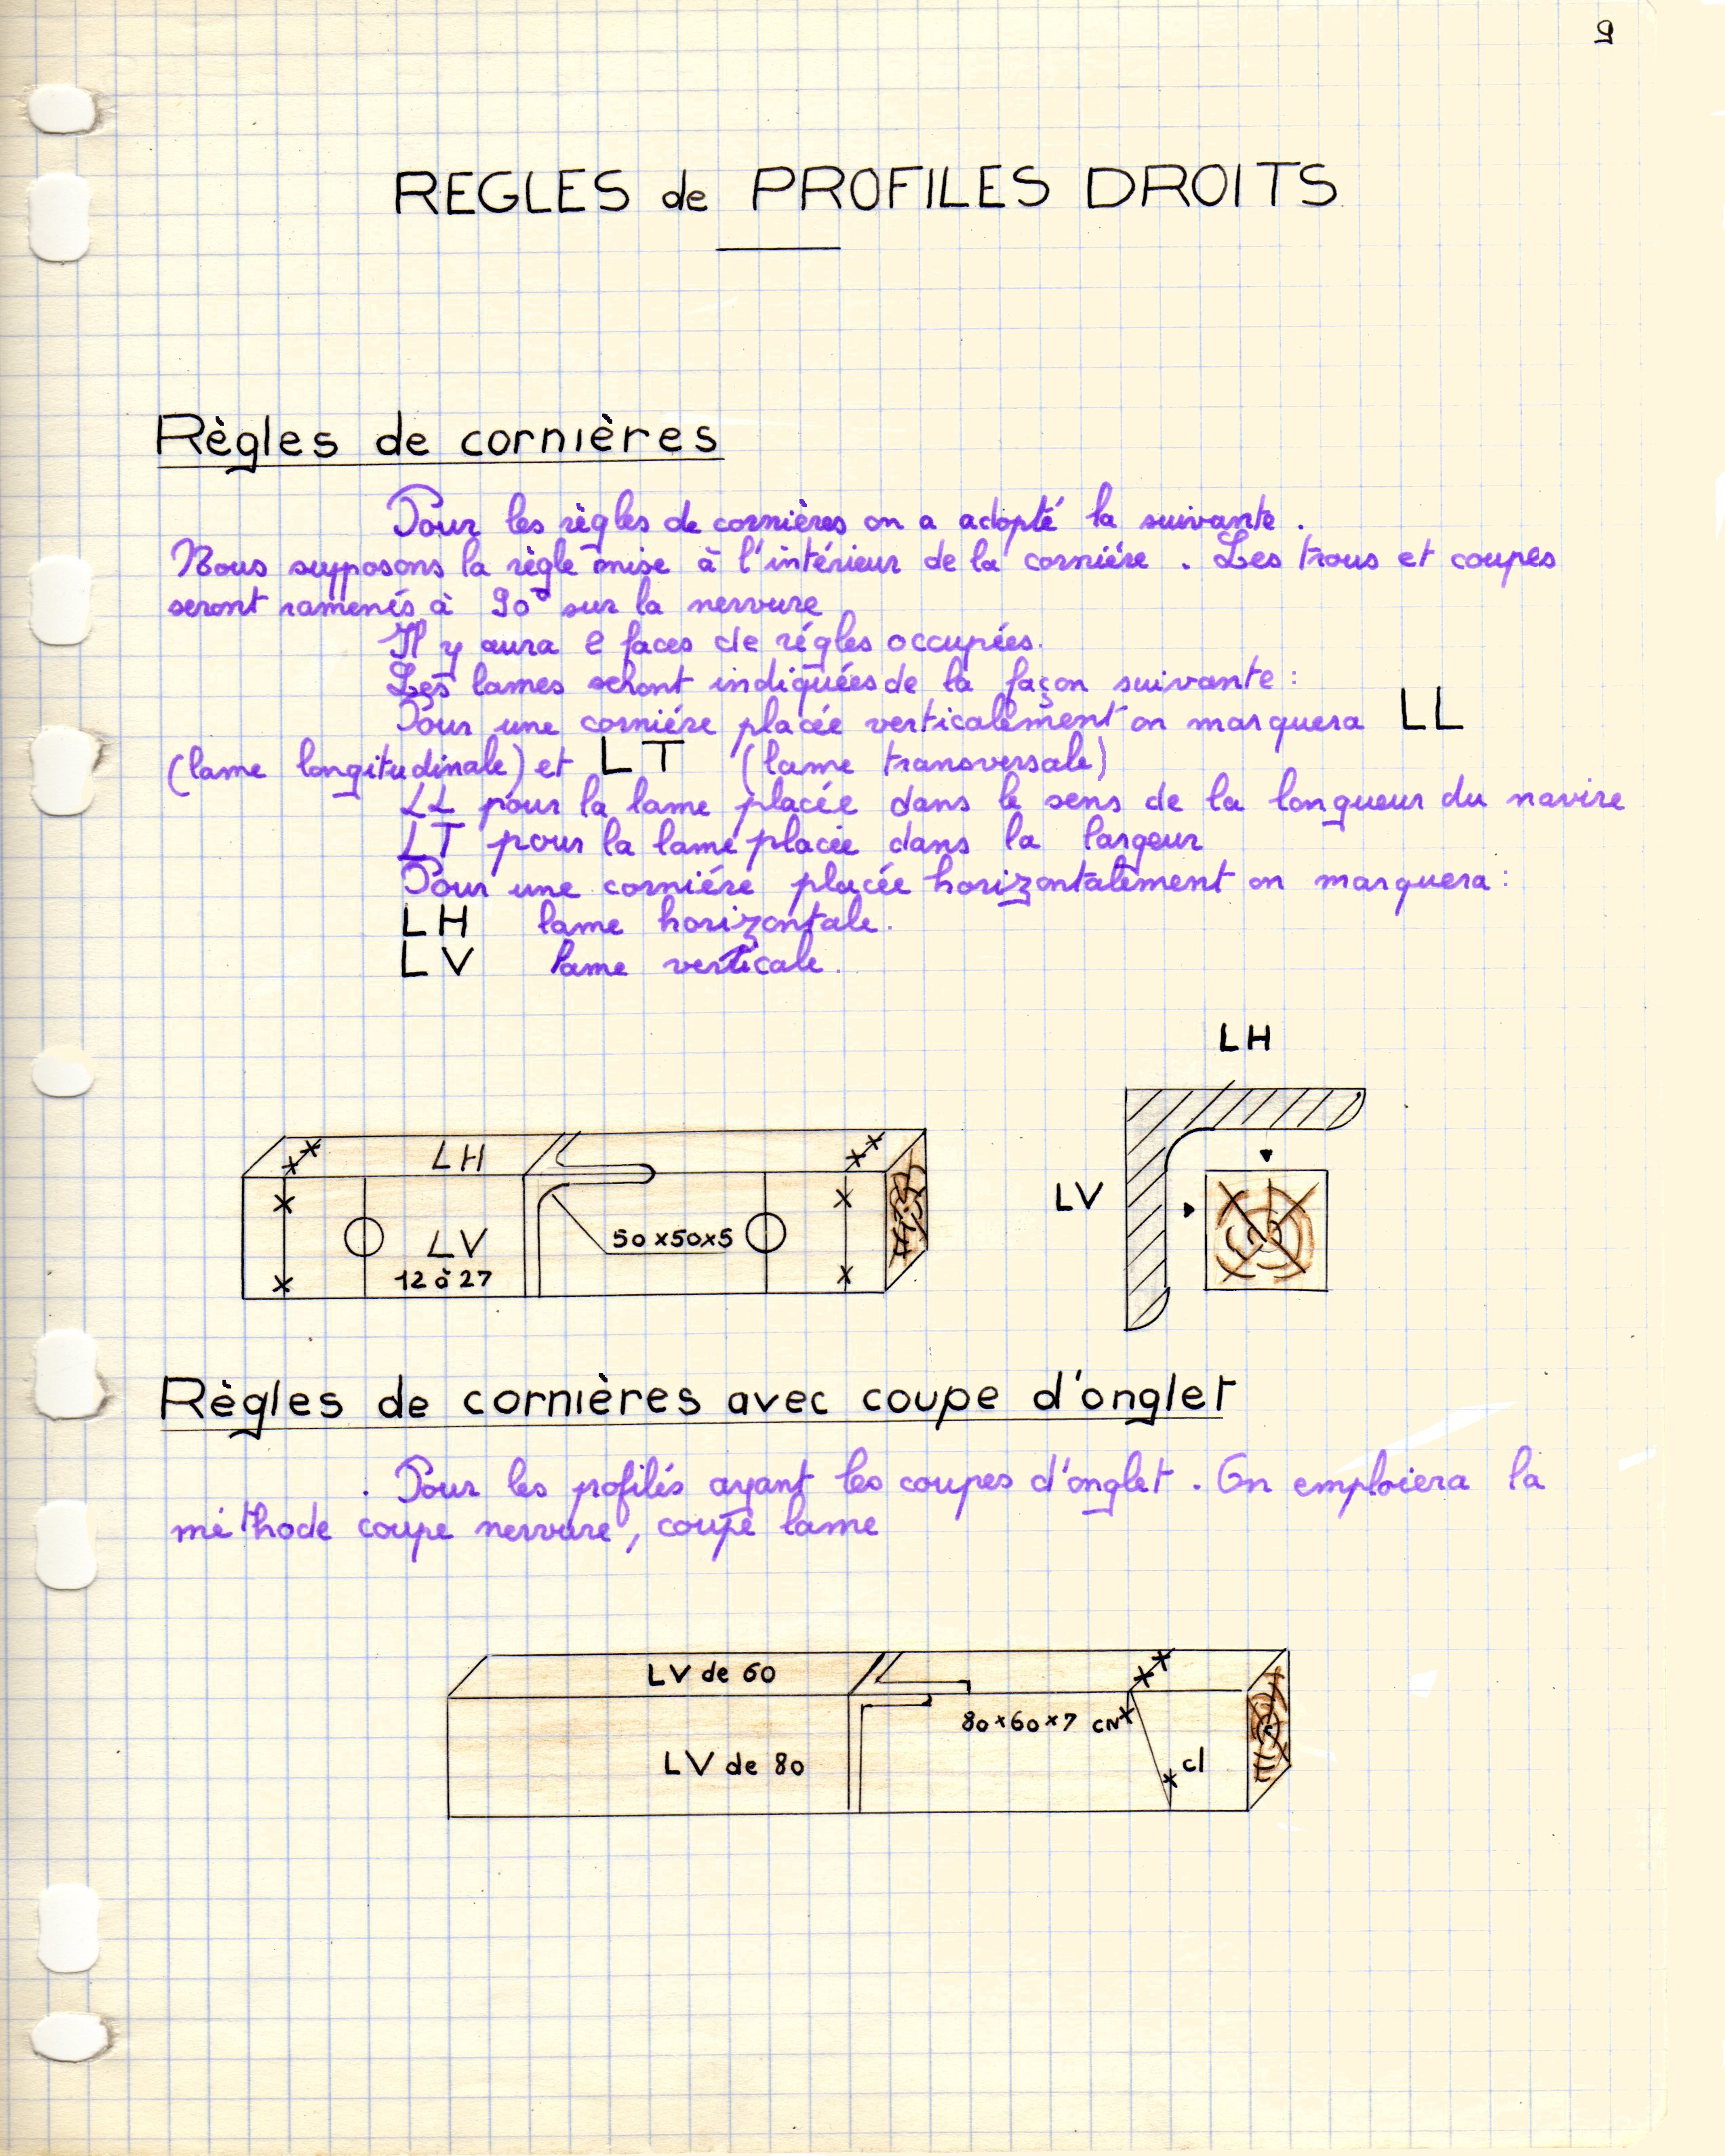 9
REGLES de PROFILES DROITS
Règles de cornières
Pour les règles de cornières on a adopté la suivante.
Nous supposons la règle mise à l'intérieur de la cornière. Les trous et coupes
seront ramenés à 90° sur la nervure
Il y aura 2 faces de régles occupées.
Les lames seront indiquées de la façon suivante :
Pour une corniére placée verticalement on marquera LL
(lame longitudinale) et LT (lame transversale)
LL pour la lame placée dans le sens de la longueur du navire
LT pour la lame placée dans la largeur
Pour une corniére placée horizontalement on marquera :
LH lame horizontale.
LV lame verticale.
LH
LH
LV
LV
50x50x5
12 à 27
Règles de cornières avec coupe d'onglet
Pour les profilés ayant les coupes d'onglet. On emploiera la
méthode coupe nervure, coupe lame
LV de 60
80x60x7 CN
LV de 80
cl